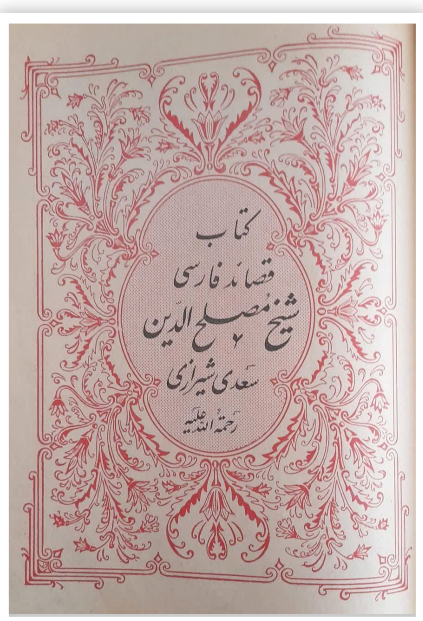 کتاب
قصائد فارسی
شیخ مصلح الدین
سعدی شیرازی
رحمة الله علیه